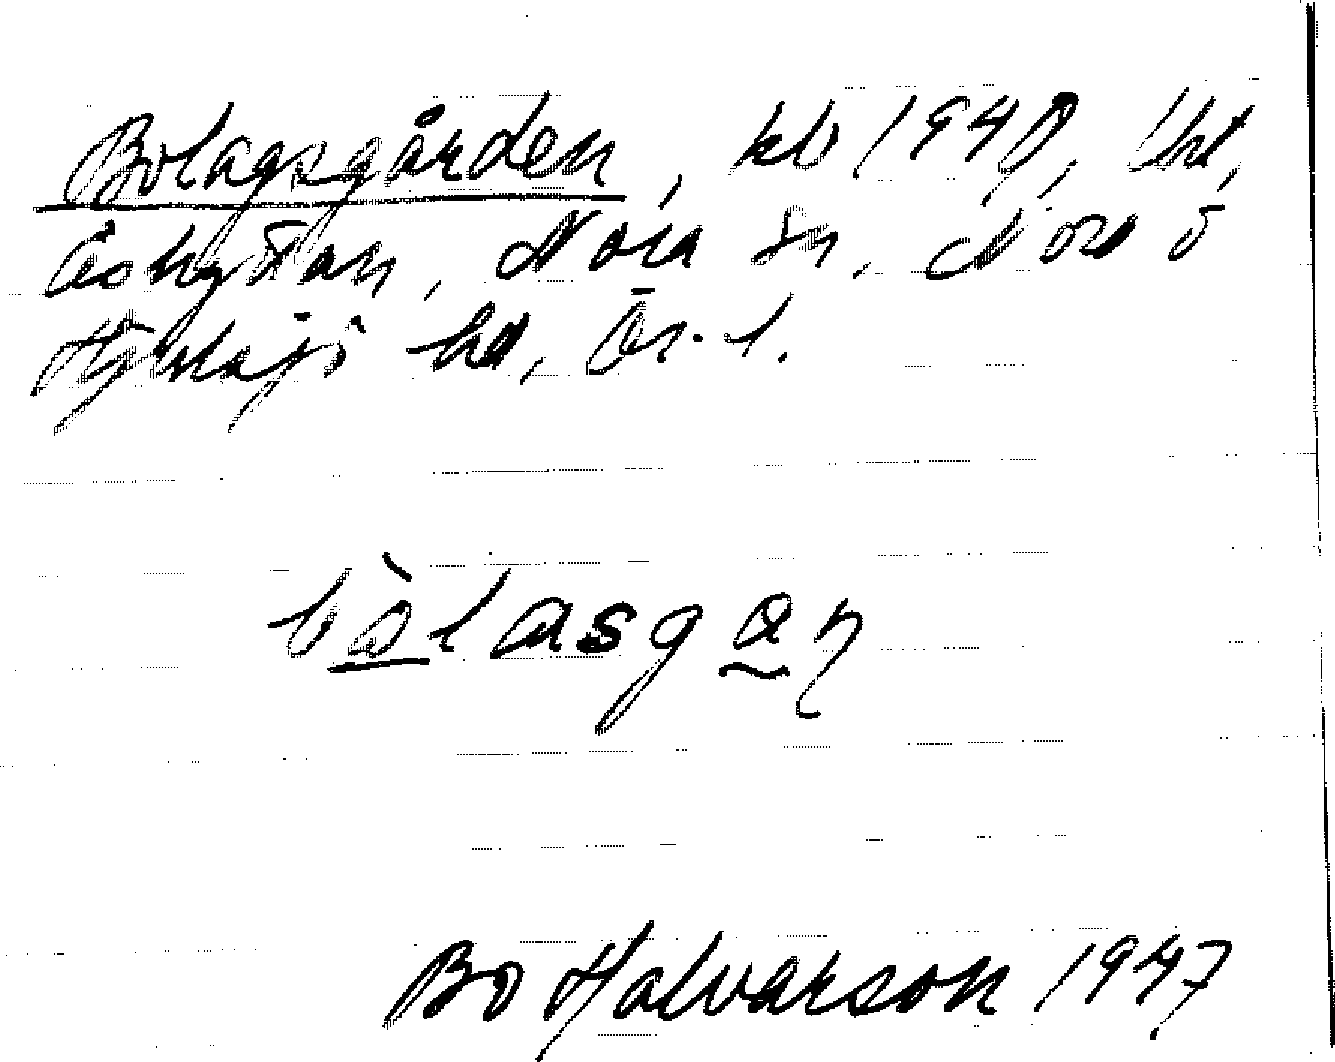 Bolagsgården, kb 1940, lht,
Åshyttan, Nora sn, Nora o
Hjulsjö hd, Ör. l.
bòlasgan
Bo Halvarson 1947